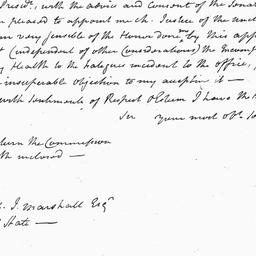 Presidt., with the advice and consent of the Sena
pleased to appoint me Ch. Justice of the
very sensible of the Honor done me by this app
(independent of other Considerations) the Incomp
my Health to the fatigues incident to the office,
insuperable objection to my accepting it —
with sentiments of Respect & Esteem I have the H
Sir your most obt. Se
turn the Commission
inclosed —
J. Marshall Esqr
State —